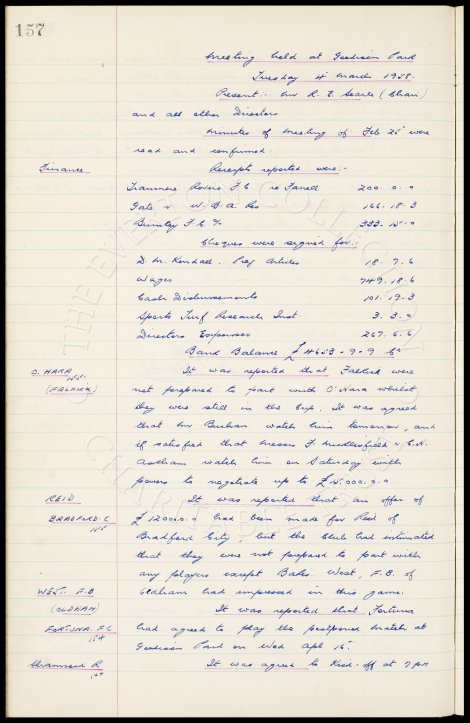 157
Meeting held at Goodison Park
Tuesday 4th March 1958.
Present:- Mr R. E. Searle (Chair)
and all other Directors
Minutes of meeting of Feb 25th were
read and confirmed.
Finance Receipts reported were:-
Tranmere Rovers F.C. re Fanell 200. 0. 0
Gate v W.B.A. Res 166. 18. 3
Burnley F.C. % 333. 15. 0
Cheques were signed for:-
D. M. Kendall. Prog Articles 18. 7. 6
Wages 749. 18. 6
Cash Disbursements 101. 19. 3
Sports Turf Research Inst 3. 3. 0
Directors Expenses 267. 6. 6
Bank Balance £4653 - 9 - 9
O. HARA It was reported that Falkirk were
(FALKIRK) not prepared to part with O'Hara whilst
they were still in the Cup. It was agreed
that Mr Buchan watch him tomorrow, and
if satisfied that Messrs F. Micklesfield & C.H.
Askham watch him on Saturday with
powers to negotiate up to £15,000. 0. 0
REID It was reported that an offer of
BRADFORD. C £12000. 0 had been made for Reid of
Bradford City, but the Club had intimated
that they were not prepared to part with
any players except Bakes. West, F.B. of
WEST. F.B Oldham had impressed in this game.
(OLDHAM) It was reported that Fortuna
FORTUNA. F.C had agreed to play the postponed match at
Goodison Park on Wed Apl 16th.
Shamrock R It was agreed to Kick-off at 7pm
THE EVERTON COLLECTION
CHARITABLE